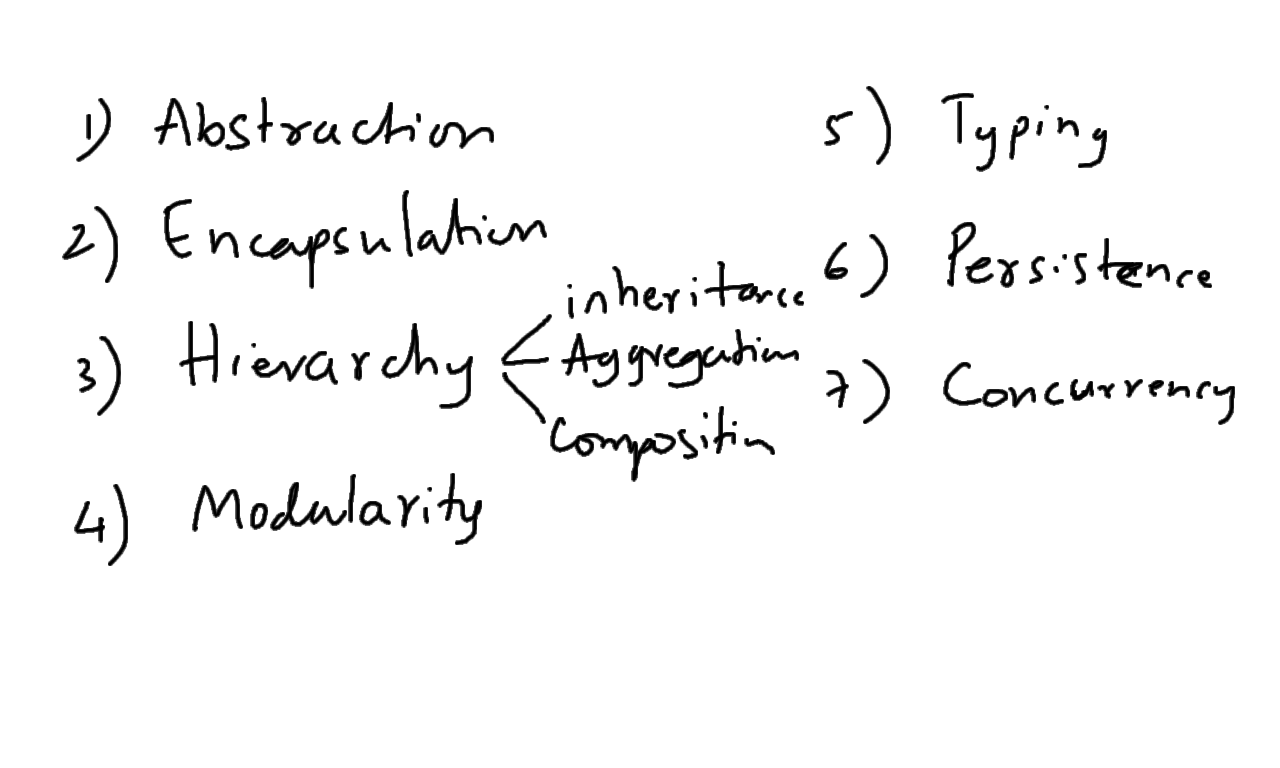 1) Abstraction
2) Encapsulation
3) Hierarchy
inheritance
Aggregation
Composition
4) Modularity
5) Typing
6) Persistence
7) Concurrency